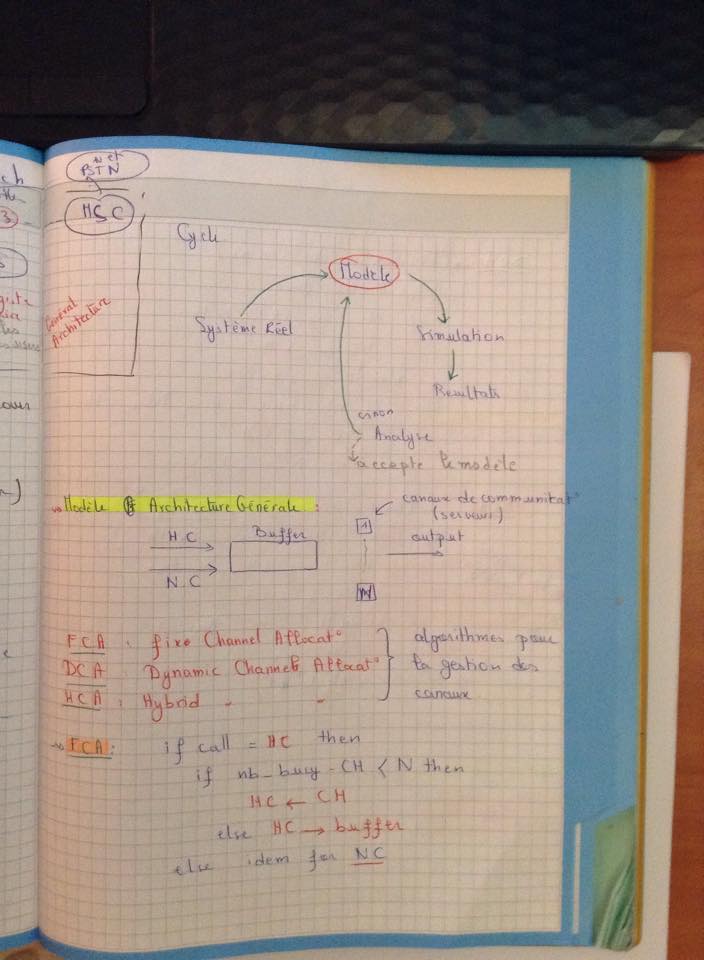 Net
PSTN
MSC
General
Architecture
Cycle
Modèle
Système Réel
Simulation
Resultats
sinon
Analyse
accepte le modèle
Modèle Architecture Générale :
canaux de communicat°
(serveurs)
H.C
Buffer
1
output
N.C
N
FCA : fixe Channel Allocat°
DCA : Dynamic Channel Allocat°
HCA : Hybrid " "
algorithmes pour
la gestion des
canaux
FCA : if call = HC then
if nb_busy-CH < N then
HC ← CH
else HC → buffer
else idem for NC